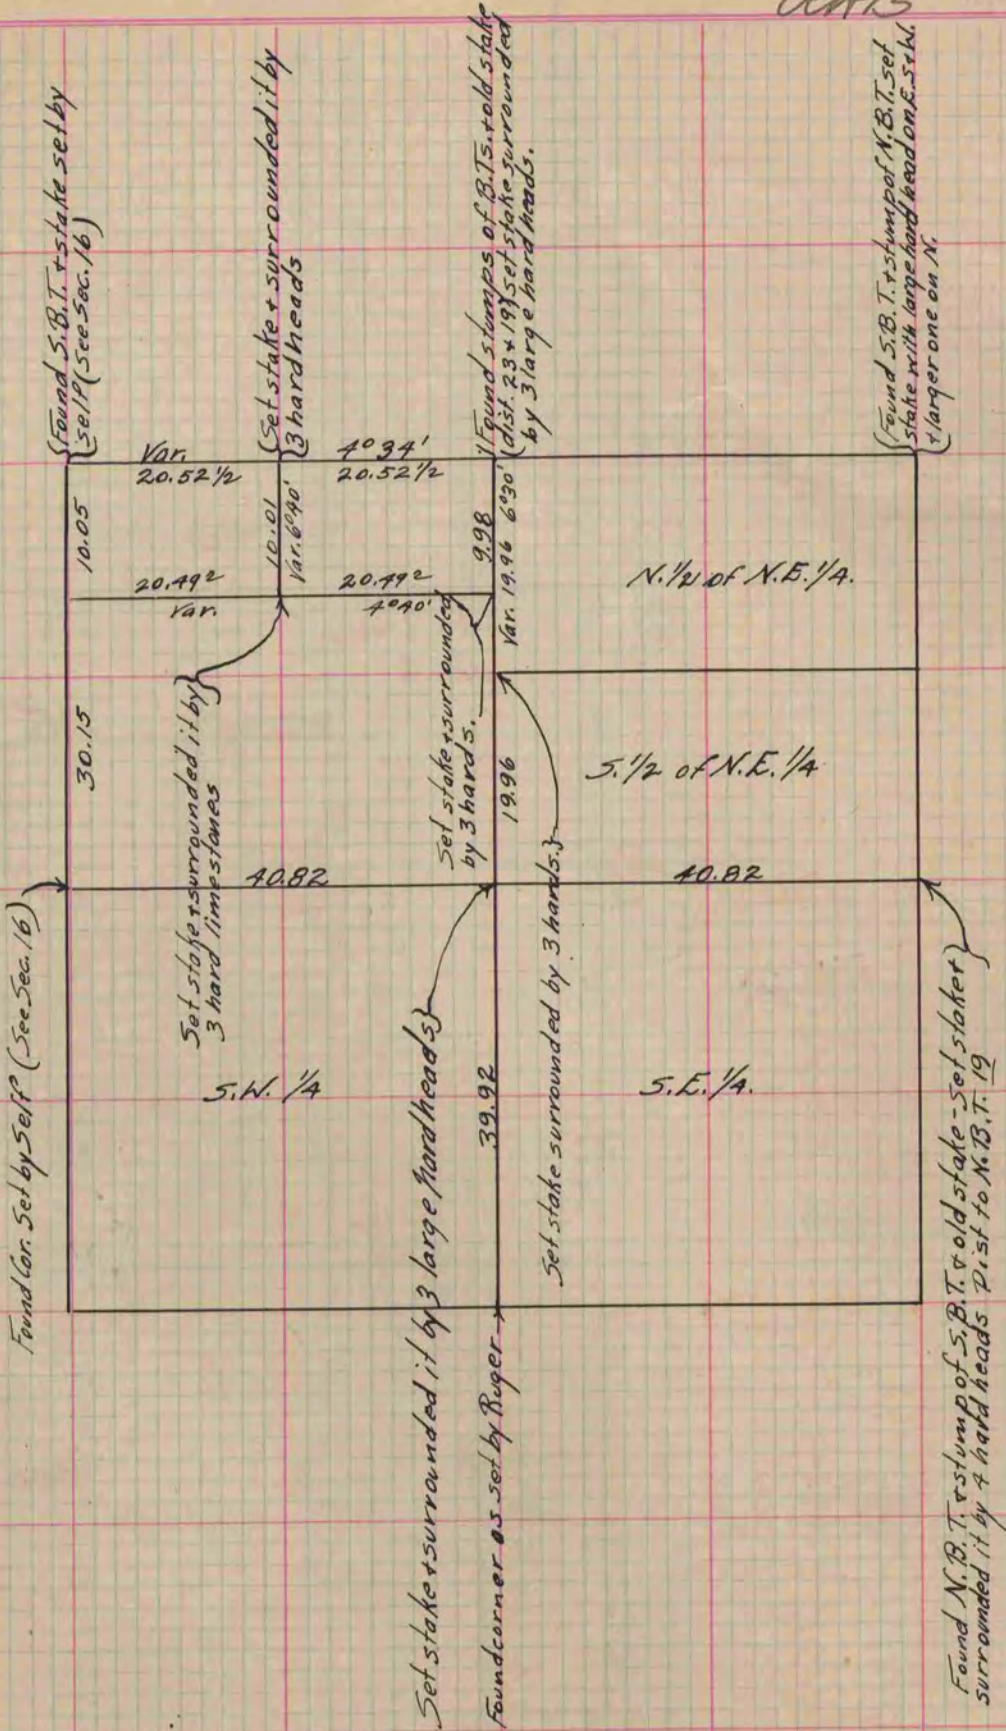 {Found S.B.T. + stake set by
{self (See Sec. 16)
{Set stake + surrounded it by
{3 hardheads
{Found stumps of B.Ts. + old stake
(dist. 23 + 19) set stake surrounded
by 3 large hard heads.
{Found S.B.T. + stump of N.B.T. set
stake with large hard head on E. S + W.
{+ larger one on N.
Var. 4°34'
20.52 1/2 20.52 1/2
10.05
10.01
Var. 6°40'
9.98
Var. 19.96 6°30'
20.49² 20.49²
Var. 4°40'
N. 1/2 of N.E. 1/4.
30.15
Set stake + surrounded it by}
3 hard limestones
Set stake + surrounded
by 3 hards.
19.96
S. 1/2 of N.E. 1/4
40.82 40.82
Found Cor. Set by Self (See Sec. 16)
S.W. 1/4
Set stake + surrounded it by 3 large hard heads}
39.92
Set stake surrounded by 3 hards.}
S.E. 1/4.
Found corner as set by Ruger
Found N.B.T. + stump of S.B.T. + old stake - Set stake +}
surrounded it by 4 hard heads Dist to N.B.T. 19